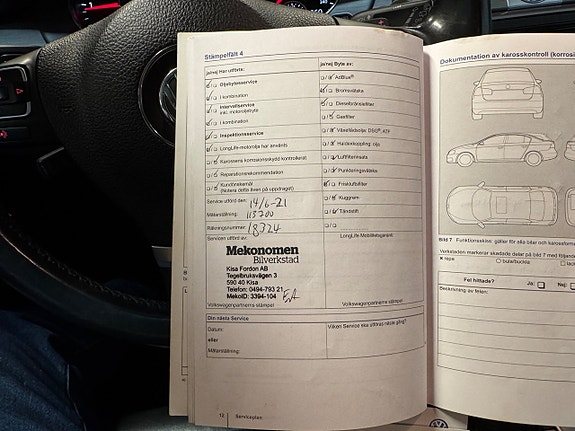 Stämpelfält 4
ja/nej Har utförts:
Oljebytesservice
I kombination
Intervallservice
inkl. motoroljebyte
I kombination
Inspektionsservice
LongLife-motorolja har använts
Karossens korrosionsskydd kontrollerat
Reparationsrekommendation
Kundönskemål
(Notera detta även på uppdraget)
Service utförd den: 14/6-21
Mätarställning: 113700
Räkningsnummer: 18324
Servicen utförd av:
Mekonomen
Bilverkstad
Kisa Fordon AB
Tegelbruksvägen 3
590 40 Kisa
Telefon: 0494-793 21
MekoID: 3394-104
Volkswagenpartnerns stämpel
ja/nej Byte av:
AdBlue®
Bromsvätska
Dieselbränslefilter
Gasfilter
Växellådsolja: DSG®, 4x4
Haldexkoppling: olja
Luftfilterinsats
Punkteringsvätska
Friskluftsfilter
Kuggrem
Tändstift
LongLife Mobilitetsgaranti
Volkswagenpartnerns stämpel
Din nästa Service
Datum:
eller
Mätarställning:
Vilken Service ska utföras nästa gång?
12 Serviceplan
Dokumentation av karosskontroll
Bild 7 Funktionsskiss: gäller för alla bilar och
Verkstaden markerar skadade delar på bild 7 med
repa
bula/buckla
Fel hittade?
Ja:
Nej:
Beskrivning av felen: